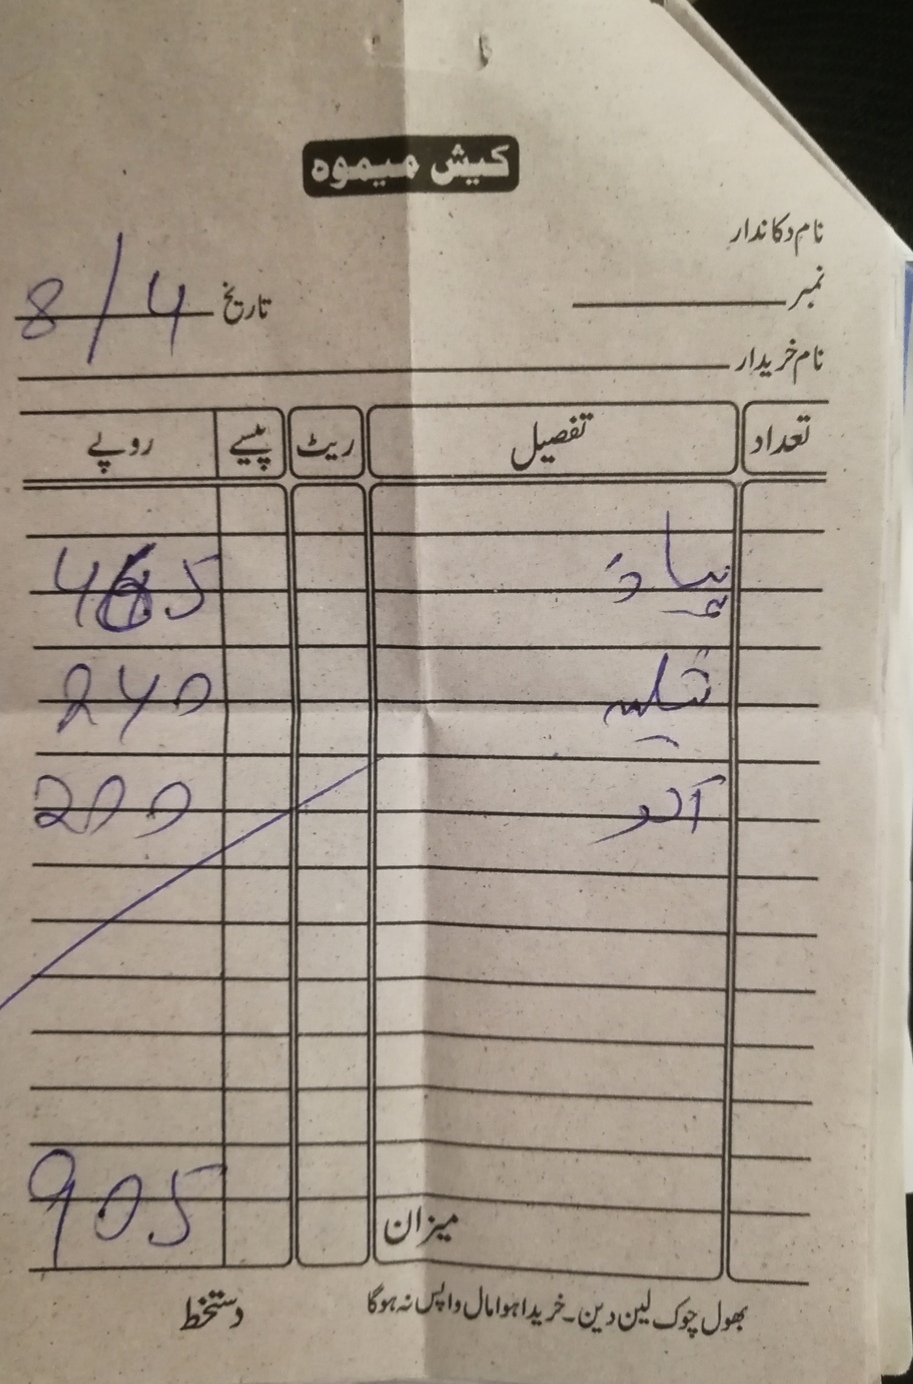 کیش میمو
نام دکاندار
نمبر
تاریخ 8/4
نام خریدار
تعداد تفصیل ریٹ پیسے روپے
پیاز 465
240
آلو 200
میزان 905
بھول چوک لین دین۔ خریدا ہوا مال واپس نہ ہوگا
دستخط